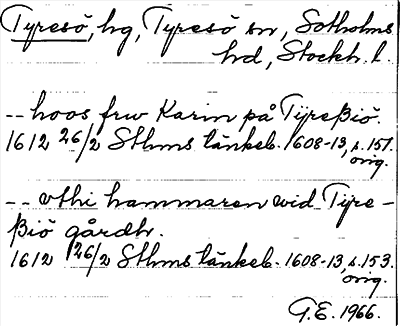 Tyresö, hg, Tyresö sn, Sotholms
hd, Stockh. l.
-- hoos frw Karin på Tÿreßiö.
1612 26/2 Sthms tänkeb. 1608-13, s. 151.
orig.
-- vthi hammaren wid Tÿre-
ßiö gårdh.
1612 26/2 Sthms tänkeb. 1608-13, s. 153.
orig.
G.E. 1966.